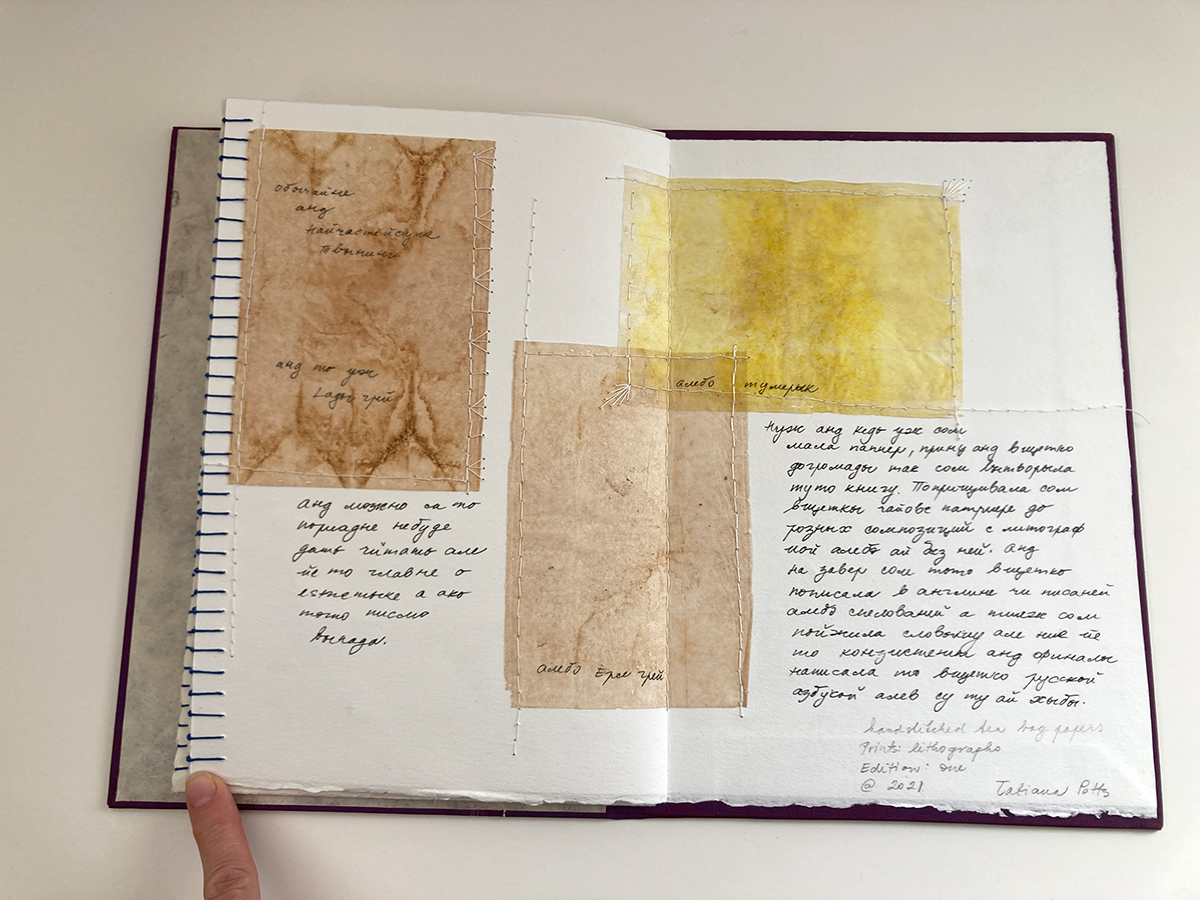 обычайне
анд
найчастейсуне
твынинг
анд то уж
Lады грей
анд можно са то
порядне небуде
дать чйтать але
йе то главне о
естетыке а ако
тото писмо
выпада.
алебо Ерл грей
алебо тумерык
Нуж анд кедь уж сом
мала папиер, прину анд вщетко
догромады так сом вытворыла
туто книгу. Попришивала сом
вщеткы чайове папиере до
розных сомпозиций с литограф
ией алебо ай без ней. Анд
на завер сом тото вщетко
пописала в англине чи писаней
алебо спелованей а тиеж сом
пойжила словычу але ние йе
то конзистентн анд финалы
написала то вщетко русской
азбукой алев су ту ай хыбы.
handstitched tea bag papers
Prints: lithographs
Edition: one
@ 2021
Tatiana Potts